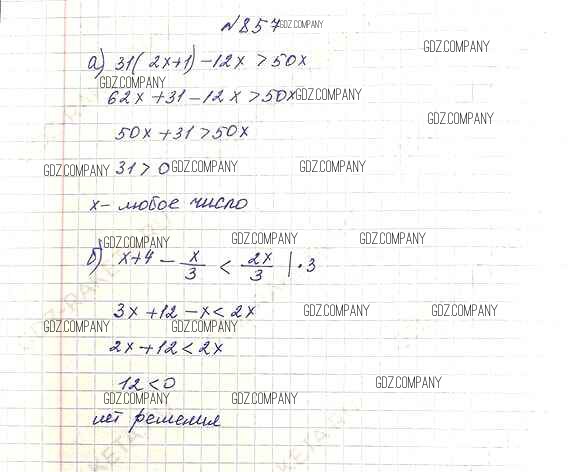 №857 GDZ.COMPANY
GDZ.COMPANY
а) 31(2x+1)-12x>50x
GDZ.COMPANY
62x+31-12x>50x GDZ.COMPANY
GDZ.COMPANY
50x+31>50x
GDZ.COMPANY 31>0 GDZ.COMPANY GDZ.COMPANY
x- любое число
GDZ.COMPANY GDZ.COMPANY GDZ.COMPANY
б) x+4 - x/3 < 2x/3 |·3
3x+12-x<2x GDZ.COMPANY GDZ.COMPANY
GDZ.COMPANY GDZ.COMPANY
2x+12<2x
12<0 GDZ.COMPANY
GDZ.COMPANY GDZ.COMPANY
нет решения